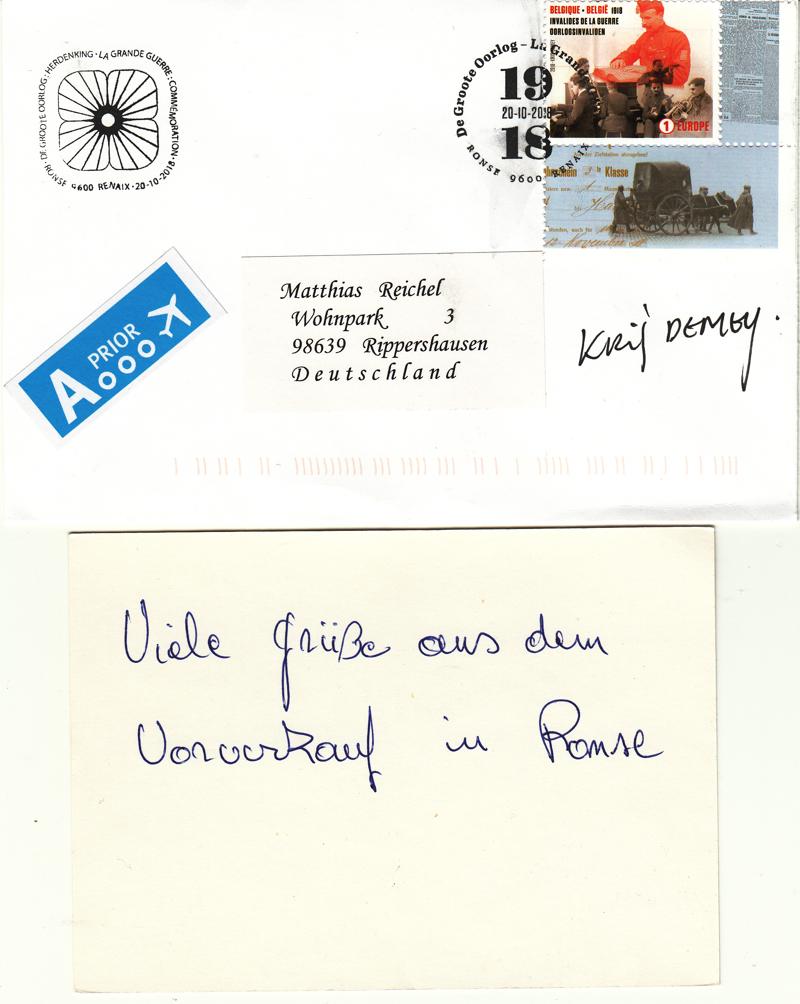 DE GROOTE OORLOG: HERDENKING · LA GRANDE GUERRE: COMMÉMORATION ·
RONSE 9600 RENAIX · 20-10-2018 ·
De Groote Oorlog – La Grande
19
20-10-2018
18
RONSE 9600 RENAIX
BELGIQUE · BELGIË 1918
INVALIDES DE LA GUERRE
OORLOGSINVALIDEN
1 EUROPE
Klasse
November
A PRIOR
Matthias Reichel
Wohnpark 3
98639 Rippershausen
Deutschland
Krij DEMEY.
Viele Grüße aus dem
Vorverkauf in Ronse